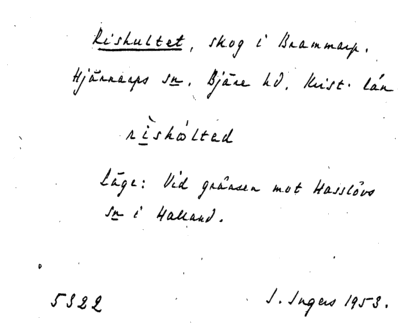 Rishultet, skog i Brammarp.
Hjärnarps sn. Bjäre hd. Krist. län
rìshəltəd
Läge: Vid gränsen mot Hasslövs
sn i Halland.
5322 I. Ingers 1953.